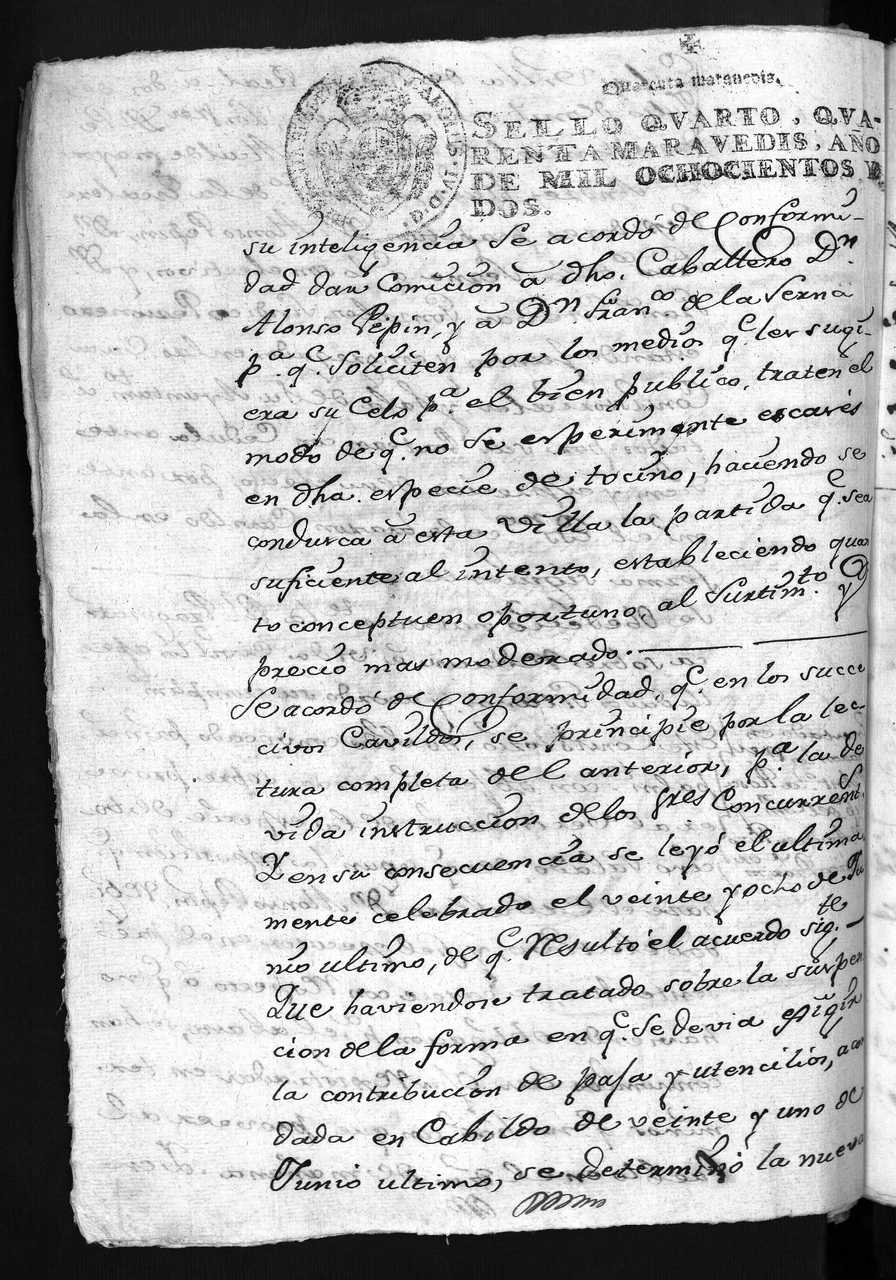 Quarenta maravedis.
SELLO QVARTO, QVA-
RENTA MARAVEDIS, AÑO
DE MIL OCHOCIENTOS Y
DOS.
su inteligencia se acordó de Conformi-
dad dar Comicion à dho. Caballero Dn.
Alonso Pepin, y à Dn. Franco. de la Serna
pa. qe. Soliciten por los medios qe. les sugi
era su Celo pa. el bien publico, traten el
modo de qe. no se esperimente escaces
en dha. especie de tocino, haciendo se
condusca à esta Villa la partida qe. sea
suficiente al intento, estableciendo quan
to conceptuen oportuno al Surtimto. y
precio mas moderado.
Se acordó de Conformidad, qe. en los succe
civos Cavildos, se principie por la lec-
tura completa del anterior, pa. la de
vida instruccion de los Sres. Concurrents.
Y en su consecuencia se leyó el ultima
mente celebrado el veinte y ocho de Ju
nio ultimo, de qe. resultó el acuerdo sigte.
Que haviendose tratado sobre la suspen
cion de la forma en qe. se devia exigir
la contribucion de paja y utencilios, acor
dada en Cabildo de veinte y uno de
Junio ultimo, se determinó la nueva